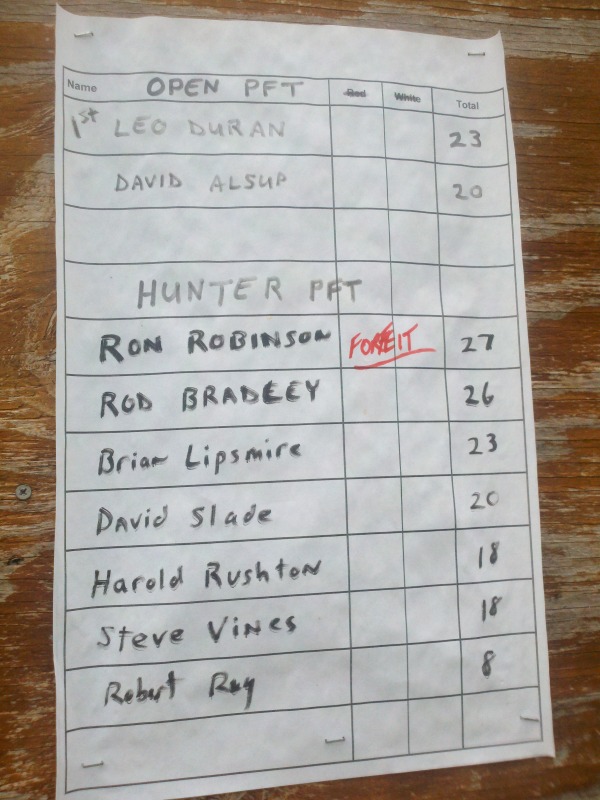 Name OPEN PFT Red White Total
1st LEO DURAN 23
DAVID ALSUP 20
HUNTER PFT
RON ROBINSON FOREIT 27
ROD BRADLEY 26
Brian Lipsmire 23
David Slade 20
Harold Rushton 18
Steve Vines 18
Robert Ray 8